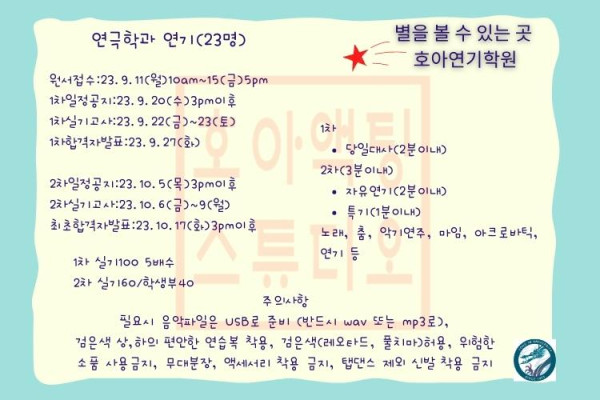 연극학과 연기(23명)
별을 볼 수 있는 곳
호아연기학원
원서접수:23.9.11(월)10am~15(금)5pm
1차일정공지:23.9.20(수)3pm이후
1차실기고사:23.9.22(금)~23(토)
1차합격자발표:23.9.27(화)
2차일정공지:23.10.5(목)3pm이후
2차실기고사:23.10.6(금)~9(월)
최초합격자발표:23.10.17(화)3pm이후
1차 실기100 5배수
2차 실기60/학생부40
1차
당일대사(2분이내)
2차(3분이내)
자유연기(2분이내)
특기(1분이내)
노래, 춤, 악기연주, 마임, 아크로바틱,
연기 등
호아액팅
스튜디오
주의사항
필요시 음악파일은 USB로 준비 (반드시 wav 또는 mp3로),
검은색 상,하의 편안한 연습복 착용, 검은색(레오타드, 풀치마)허용, 위험한
소품 사용금지, 무대분장, 액세서리 착용 금지, 탭댄스 제외 신발 착용 금지